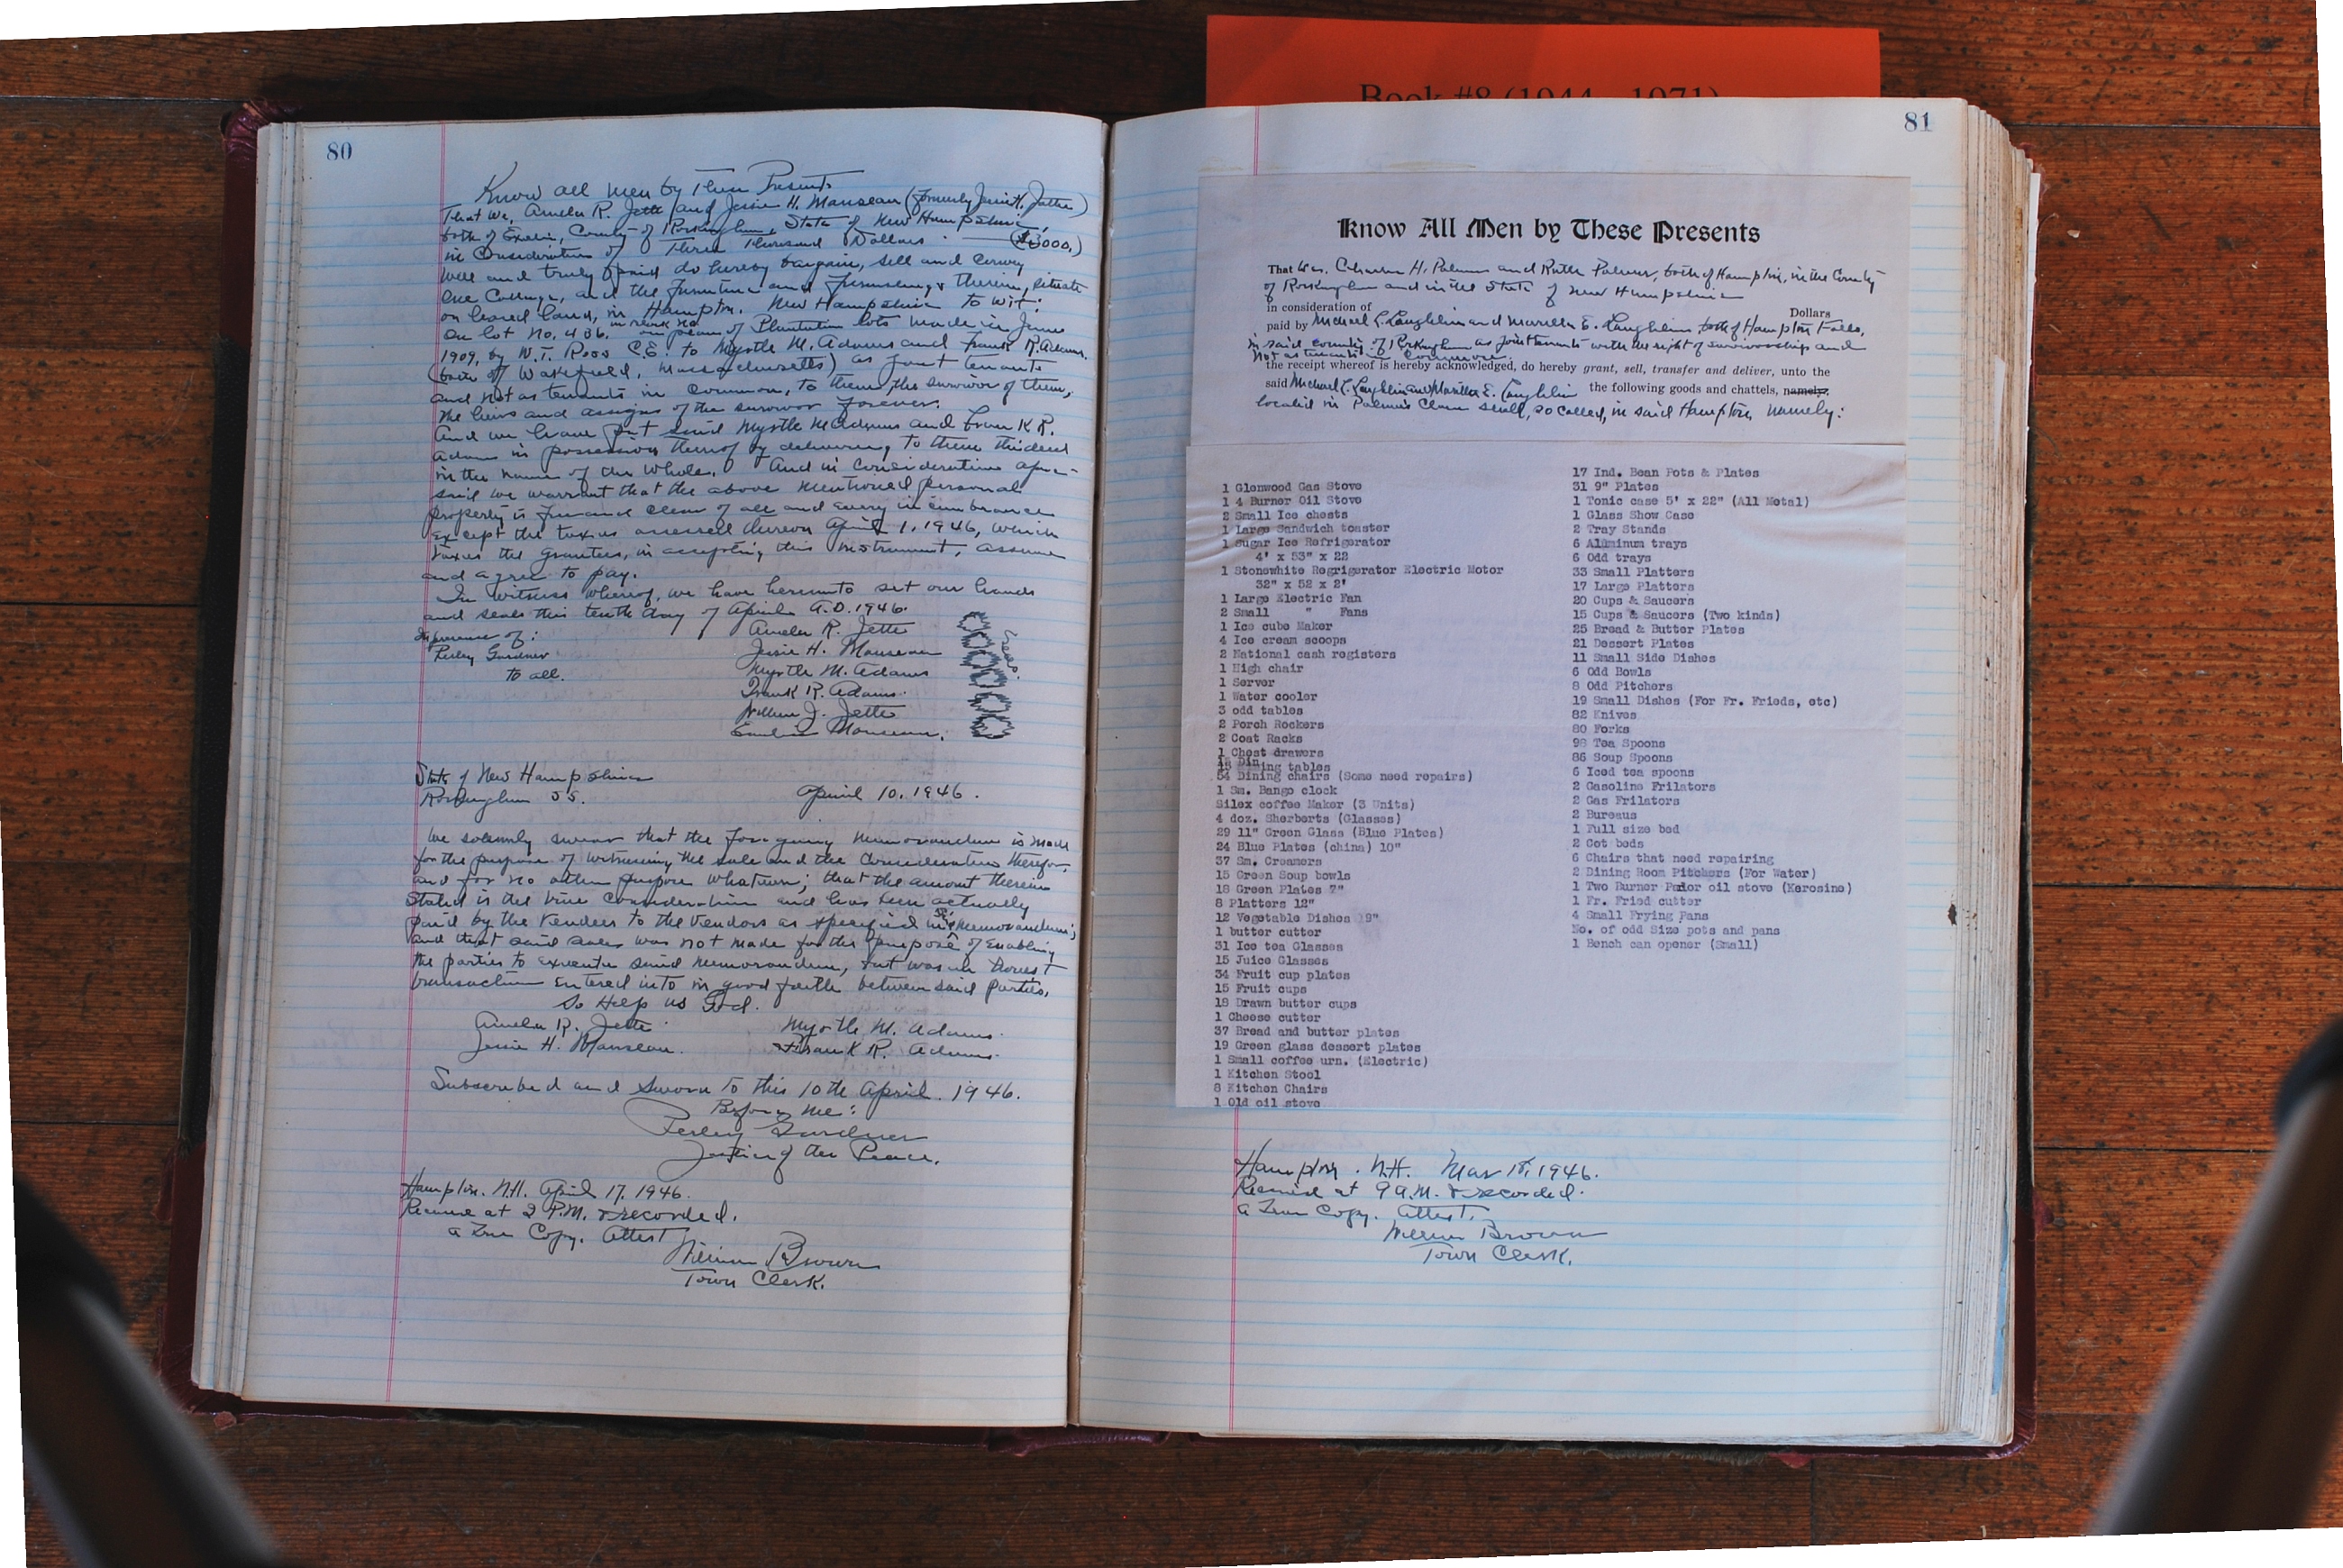 Book #8 (1944 - 1971)
80
Know all Men by These Presents
That We, Amelia R. Jette and Jessie H. Manseau (formerly Jessie H. Jette)
both of Exeter, County of Rockingham, State of New Hampshire,
in Consideration of Three Thousand Dollars ($3000.)
well and truly paid do hereby bargain, sell and convey
one Cottage, and the furniture and furnishings therein, situate
on leased land, in Hampton, New Hampshire to wit:
On lot No. 436. on plan of Plantation lots made in June
1909, by W. T. Ross C.E. to Myrtle M. Adams and Frank R. Adams.
(both of Wakefield, Massachusetts) as joint tenants
and not as tenants in common, to them, the survivor of them,
the heirs and assigns of the survivor forever.
And we have put said Myrtle M. Adams and Frank R.
Adams in possession thereof by delivering to them this deed
in the name of the whole. And in consideration afore-
said we warrant that the above mentioned personal
property is free and clear of all and every incumbrance
except the taxes assessed thereon April 1, 1946, which
taxes the grantees, in accepting this instrument, assume
and agree to pay.
In witness whereof, we have hereunto set our hands
and seals this tenth day of April A.D. 1946.
In presence of:
Perley Gardner
to all.
Amelia R. Jette
Jessie H. Manseau
Myrtle M. Adams
Frank R. Adams.
William J. Jette
Manseau.
State of New Hampshire
Rockingham SS. April 10, 1946.
We solemnly swear that the foregoing memorandum is made
for the purpose of witnessing the sale and the consideration therefor,
and for no other purpose whatever; that the amount therein
stated is the true consideration and has been actually
paid by the Vendees to the Vendors as specified in sd. memorandum;
and that said sale was not made for the purpose of enabling
the parties to execute said memorandum, but was an honest
transaction entered into in good faith between said parties.
So Help us God.
Amelia R. Jette Myrtle M. Adams.
Jessie H. Manseau. Frank R. Adams.
Subscribed and sworn to this 10th April. 1946.
Before me:
Perley Gardner
Justice of the Peace.
Hampton. N.H. April 17, 1946.
Received at 2 P.M. & recorded.
a True Copy. Attest
William Brown
Town Clerk.
81
Know All Men by These Presents
That We, Charles H. Palmer and Ruth Palmer, both of Hampton, in the County
of Rockingham and in the State of New Hampshire
in consideration of Dollars
paid by Michael L. Laughlin and Marilla E. Laughlin, both of Hampton Falls,
in said county of Rockingham as joint tenants with the right of survivorship and
not as tenants in common.
the receipt whereof is hereby acknowledged, do hereby grant, sell, transfer and deliver, unto the
said Michael L. Laughlin and Marilla E. Laughlin the following goods and chattels, namely:
located in Palmer's Clam Shell, so called, in said Hampton, namely:
1 Glenwood Gas Stove
1 4 Burner Oil Stove
2 Small Ice chests
1 Large Sandwich toaster
1 Sugar Ice Refrigerator
4' x 53" x 22
1 Stonewhite Regrigerator Electric Motor
32" x 52 x 2'
1 Large Electric Fan
2 Small " Fans
1 Ice cube Maker
4 Ice cream scoops
2 National cash registers
1 High chair
1 Server
1 Water cooler
3 odd tables
2 Porch Rockers
2 Coat Racks
1 Chest drawers
15 Dining tables
54 Dining chairs (Some need repairs)
1 Sm. Bango clock
Silex coffee Maker (3 Units)
4 doz. Sherberts (Glasses)
29 11" Green Glass (Blue Plates)
24 Blue Plates (china) 10"
37 Sm. Creamers
15 Green Soup bowls
18 Green Plates 7"
8 Platters 12"
12 Vegetable Dishes 19"
1 butter cutter
31 Ice tea Glasses
15 Juice Glasses
34 Fruit cup plates
15 Fruit cups
18 Drawn butter cups
1 Cheese cutter
37 Bread and butter plates
19 Green glass dessert plates
1 Small coffee urn. (Electric)
1 Kitchen Stool
8 Kitchen Chairs
1 Old oil stove
17 Ind. Bean Pots & Plates
31 9" Plates
1 Tonic case 5' x 22" (All Metal)
1 Glass Show Case
2 Tray Stands
6 Aluminum trays
6 Odd trays
33 Small Platters
17 Large Platters
20 Cups & Saucers
15 Cups & Saucers (Two kinds)
25 Bread & Butter Plates
21 Dessert Plates
11 Small Side Dishes
6 Odd Bowls
8 Odd Pitchers
19 Small Dishes (For Fr. Frieds, etc)
82 Knives
80 Forks
98 Tea Spoons
86 Soup Spoons
6 Iced tea spoons
2 Gasoline Frilators
2 Gas Frilators
2 Bureaus
1 Full size bed
2 Cot beds
6 Chairs that need repairing
2 Dining Room Pitchers (For Water)
1 Two Burner Parlor oil stove (Kerosine)
1 Fr. Fried cutter
4 Small Frying Pans
No. of odd Size pots and pans
1 Bench can opener (Small)
Hampton. N.H. Mar 18, 1946.
Received at 9 A.M. & recorded.
a True Copy. Attest.
William Brown
Town Clerk.